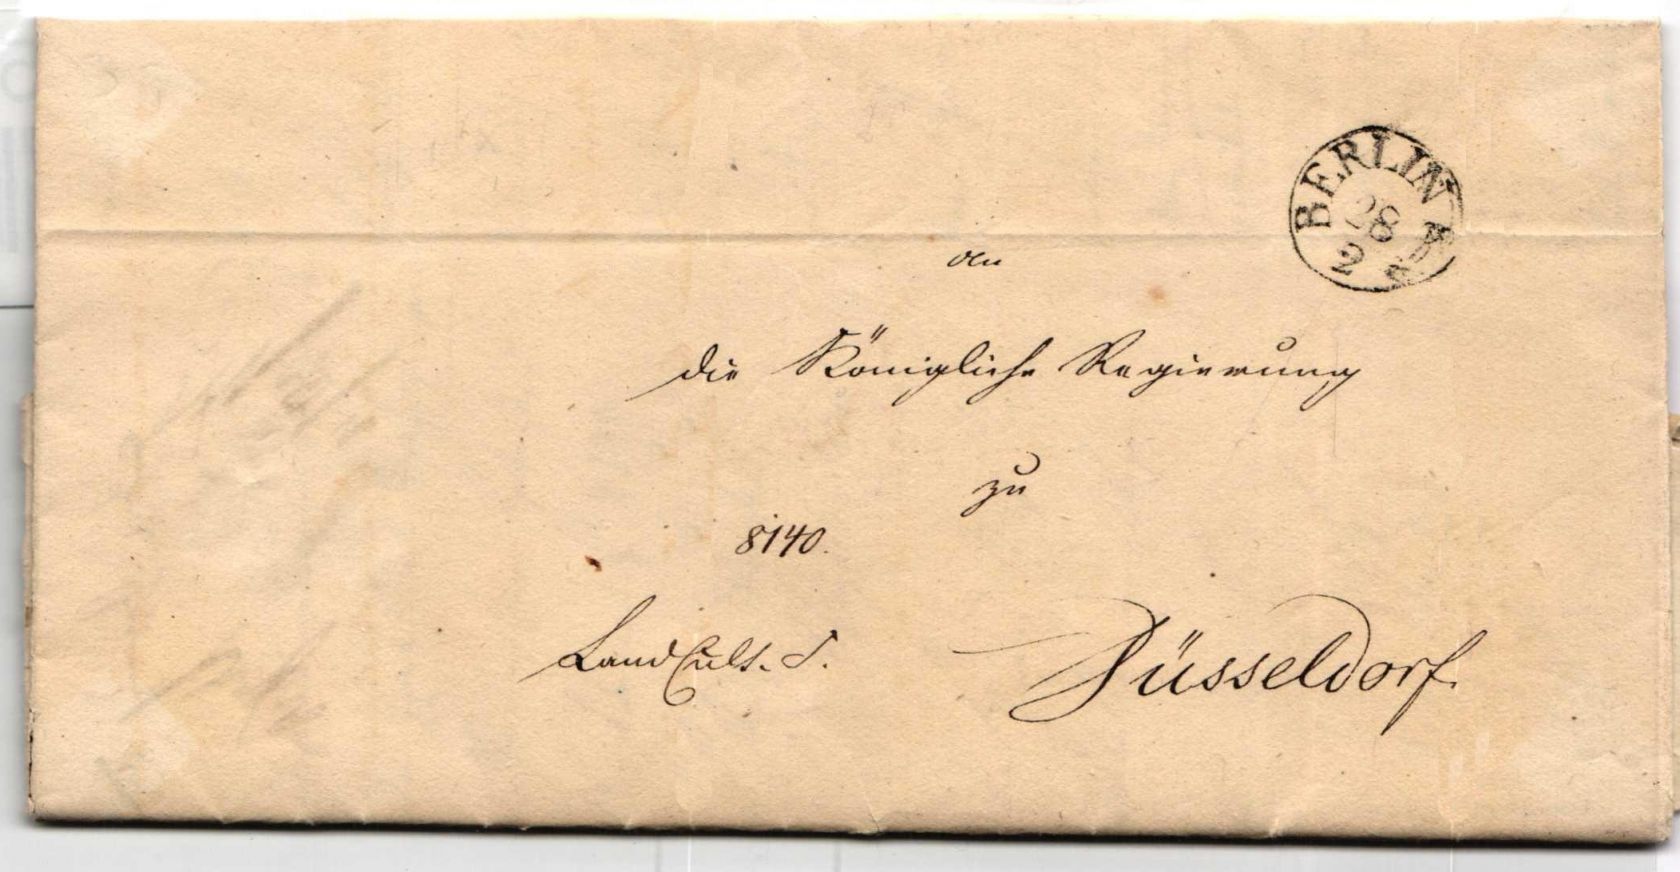 BERLIN
28
2
An
die Königliche Regierung
zu
8140.
LandCult. S.
Düsseldorf.